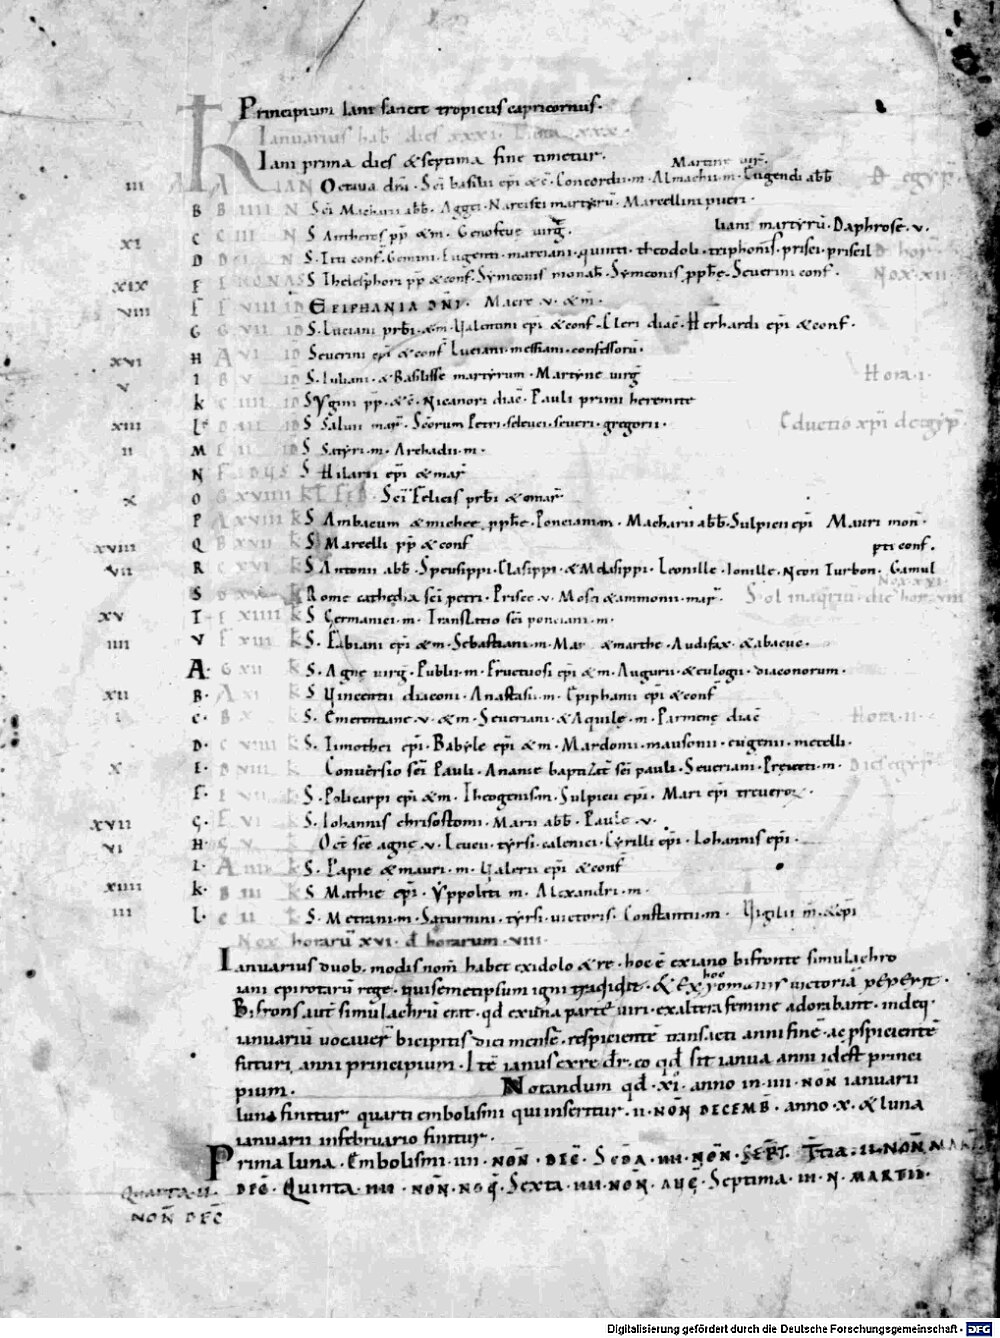 Principium Iani sancit tropicus capricornus.
Ianuarius hab dies xxxi. Luna xxx.
Iani prima dies & septima fine timetur.
Martine virg.
III A A IAN Octava dni. Sci basilii epi & c. Concordii m. Almachii m. Eugendi abb D egyp.
B B IIII N Sci Macharii abb. Aggei. Narcisci martyru. Marcellini pueri.
liani martyru. Daphrose. v.
XI C C III N S Antheros pp & m. Genofeve virg.
D D N S. Titi conf. Gemini. Eugenti. marciani. quinti. theodoli. triphonis. prisci. priscil
XIX E E NONAS S Thelesphori pp & conf. Symeonis monah. Symeonis pphe. Severini conf. Nox. xii.
VIII F F VIII ID EPIPHANIA DNI. Macre v. & m.
G G VII ID S. Luciani prbi. & m. Valentini epi & conf. Cleri diac. Herhardi epi & conf.
XVI H A VI ID Severini epi & conf Luciani. messiani. confessoru.
V I B V ID S. Iuliani. & Basilisse martyrum. Martyne virg Hora. i.
K C IIII ID S Ygini pp. & c. Nicanori diac. Pauli primi heremite
XIII L D III ID S Salvii mar. Scorum Petri. seleuci. severi. gregorii. Eductio xpi de egyp.
II M E II ID S Satyri. m. Archadii. m.
N F IDUS S Hilarii epi & mar
X O G XVIIII KL FEB. Sci Felicis prbi & mar
P A XVIII K S Ambacum & michee pphe. Ponciani. m. Macharii abb. Sulpicii epi Mauri mon.
XVIII Q B XVII K S Marcelli pp & conf pti conf.
VII R C XVI K S Antonii abb. Speusippi. Elasippi. & Melasippi. Leonille. Ionille. Neon Turbon. Gamul
Nox. xvi.
S D XV K Rome cathedra sci petri. Prisce. v. Mosei & ammonii. mar. Sol in aqriu. die hor. viii
XV T E XIIII K S Germanici. m. Translatio sci ponciani. m.
IIII V F XIII K S. Fabiani epi & m. Sebastiani. m. Mar & marthe. Audifax. & abacuc.
A. G XII K S. Agne virg. Publii. m. Fructuosi epi & m. Augurii & eulogii. diaconorum.
XII B. A XI K S Vincentii diaconi. Anastasii. m. Epiphanii epi & conf
I C. B X K S. Emerentiane. v. & m. Severiani. & Aquile. m. Parmene diac Hora. ii.
D. C VIIII K S. Timothei epi. Babyle epi & m. Mardonii. mausonii. eugenii. metelli.
X E. D VIII K Conversio sci Pauli. Ananie baptizat sci pauli. Severiani. Preiecti. m. Dies egyp.
F. E VII K S. Policarpi epi & m. Theogenis. m. Sulpicii epi. Mari epi treveror.
XVII G. F VI K S. Iohannis chrisostomi. Marii abb. Paule v.
VI H. G V K Oct sce agne. v. Leucii. tyrsi. calenici. Cyrilli epi. Iohannis epi.
I. A IIII K S. Papie & mauri. m. Valerii epi & conf
XIIII K. B III K S Mathie epi. Yppoliti m. Alexandri. m.
III L. C II K S. Metrani. m. Saturnini. tyrsi. victoris. Constantii. m. Vigilii m. & epi
Nox horaru XVI. d horarum. VIII.
Ianuarius duob. modis nom habet ex idolo & re. hoc e ex iano bifronte simulachro
hoc
iani epirotaru rege. qui semetipsum igni tradidit. & ex romanis victoria peperit.
Bifrons aut simulachru erat. qd ex una parte viri. ex altera femine adorabant. indeq.
ianuariu vocaver bicipitis dici mense. respiciente transacti anni fine. ac pspiciente
futuri anni principium. Ite ianus ex re dr. eo qd sit ianua anni id est princi
pium. Notandum qd. xi. anno in. iiii. non ianuarii
luna finitur quarti embolismi qui inseritur. ii. NON DECEMB. anno. x. & luna
ianuarii in februario finitur.
Prima luna. Embolismi. iiii. NON. DEC. Scda. iiii. NON. SEPT. Tcia. ii. NON MAR
DEC. Quinta. iiii. NON. NOV. Sexta. iiii. NON. AUG. Septima. iii. N. MARTII.
QUARTA. II.
NON DEC
Digitalisierung gefördert durch die Deutsche Forschungsgemeinschaft - DFG